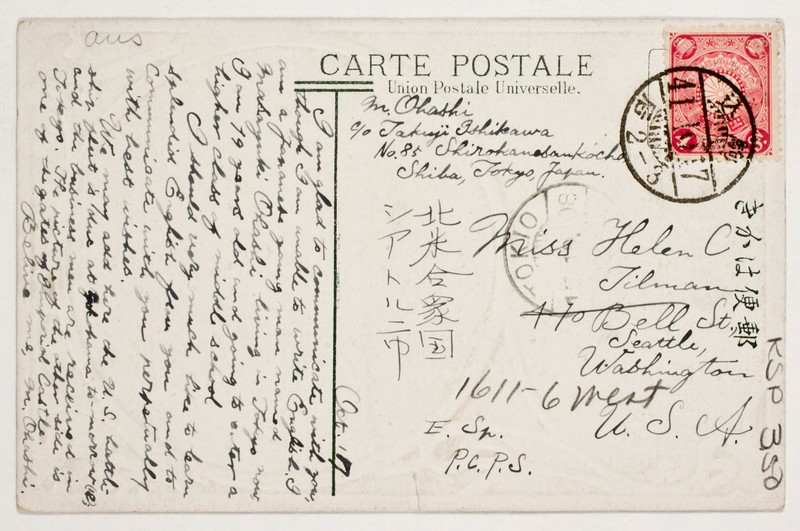 ans
CARTE POSTALE
Union Postale Universelle.
M. Ohashi
c/o Takuji Ishikawa
No. 85 Shirokanesankocho
Shiba, Tokyo, Japan.
Miss Helen C
Tilman
470 Bell St.
Seattle,
Washington
U. S. A.
1611-6 West
E. Sp.
P.C.P.S.
北米合衆国
シアトル市
きかは便郵
KSP 350
TOKIO
41 10 17
Oct. 17
I am glad to communicate with you,
though I am unable to write English. I
am a Japanese young man named
Masayuki Ohashi living in Tokyo now.
I am 19 years old and going to enter a
higher class of middle school.
I should very much like to learn
splendid English from you and to
communicate with you perpetually
with best wishes.
We may add here the U.S. battle-
ship fleet is due at Yokohama to-morrow
and the business men are received in
Tokyo. The picture of the other side is
one of the gates of Castle.
Believe me, M. Ohashi.